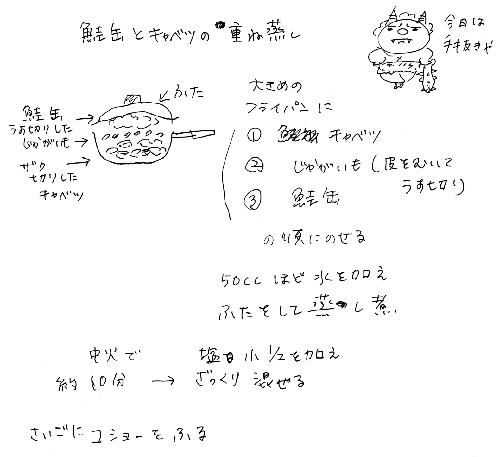 鮭缶とキャベツの重ね蒸し
今日は
手抜きや
ふた
鮭缶
うす切りした
じゃがいも
ザク
切りした
キャベツ
大きめの
フライパンに
① キャベツ
② じゃがいも(皮をむいて
うす切り)
③ 鮭缶
の順にのせる
50ccほど水を加え
ふたをして蒸し煮
中火で
約10分 → 塩 小1/2を加え
ざっくり混ぜる
さいごにコショーをふる